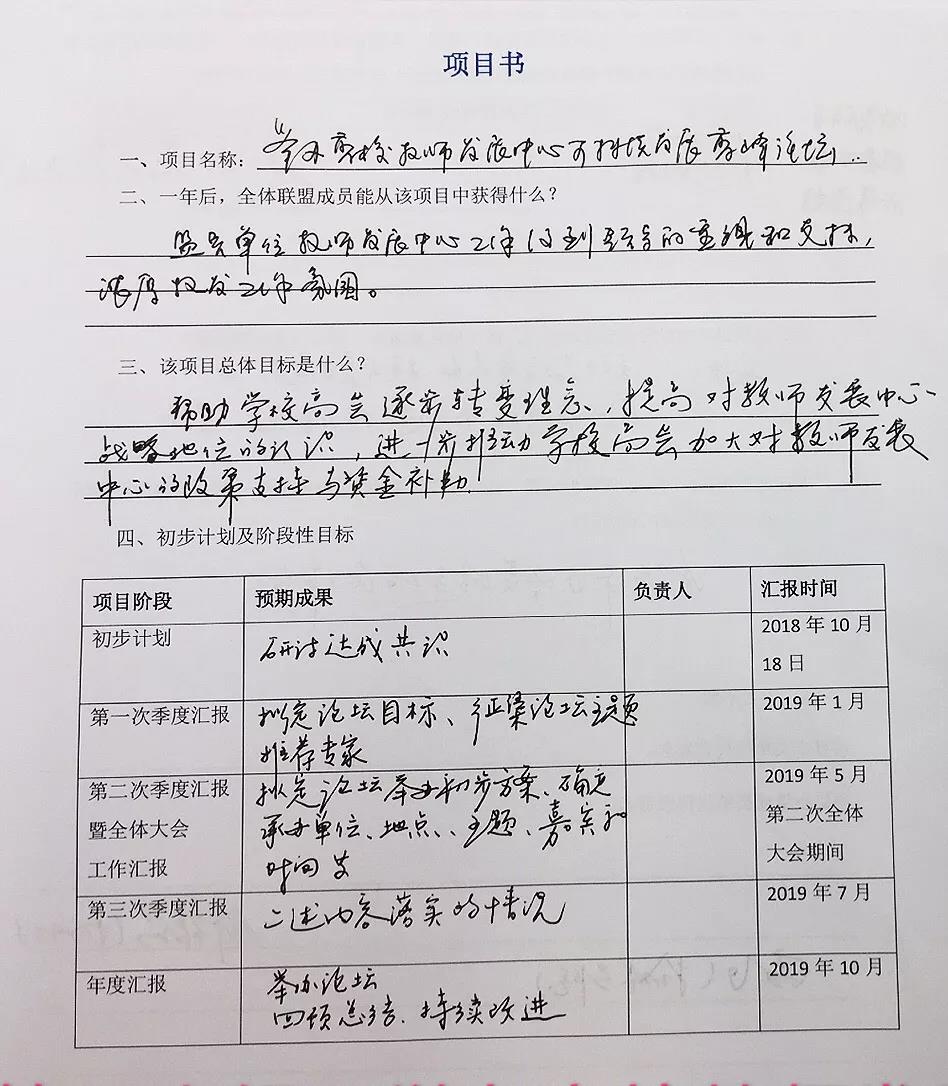 项目书
一、项目名称：“举办高校教师发展中心可持续发展高峰论坛
二、一年后，全体联盟成员能从该项目中获得什么？
盟员单位教师发展中心工作得到领导的重视和支持，
浓厚教发工作氛围。
三、该项目总体目标是什么？
帮助学校高层逐步转变理念、提高对教师发展中心
战略地位的认识，进一步推动学校高层加大对教师发展
中心的政策支持与资金补助
四、初步计划及阶段性目标
项目阶段 预期成果 负责人 汇报时间
初步计划 研讨达成共识 2018 年 10 月
18 日
第一次季度汇报 拟定论坛目标、征集论坛主题 2019 年 1 月
推荐专家
第二次季度汇报 拟定论坛举办初步方案、确定 2019 年 5 月
暨全体大会 承办单位、地点、主题、嘉宾和 第二次全体
工作汇报 时间等 大会期间
第三次季度汇报 上述内容落实的情况 2019 年 7 月
年度汇报 举办论坛 2019 年 10 月
回顾总结、持续改进